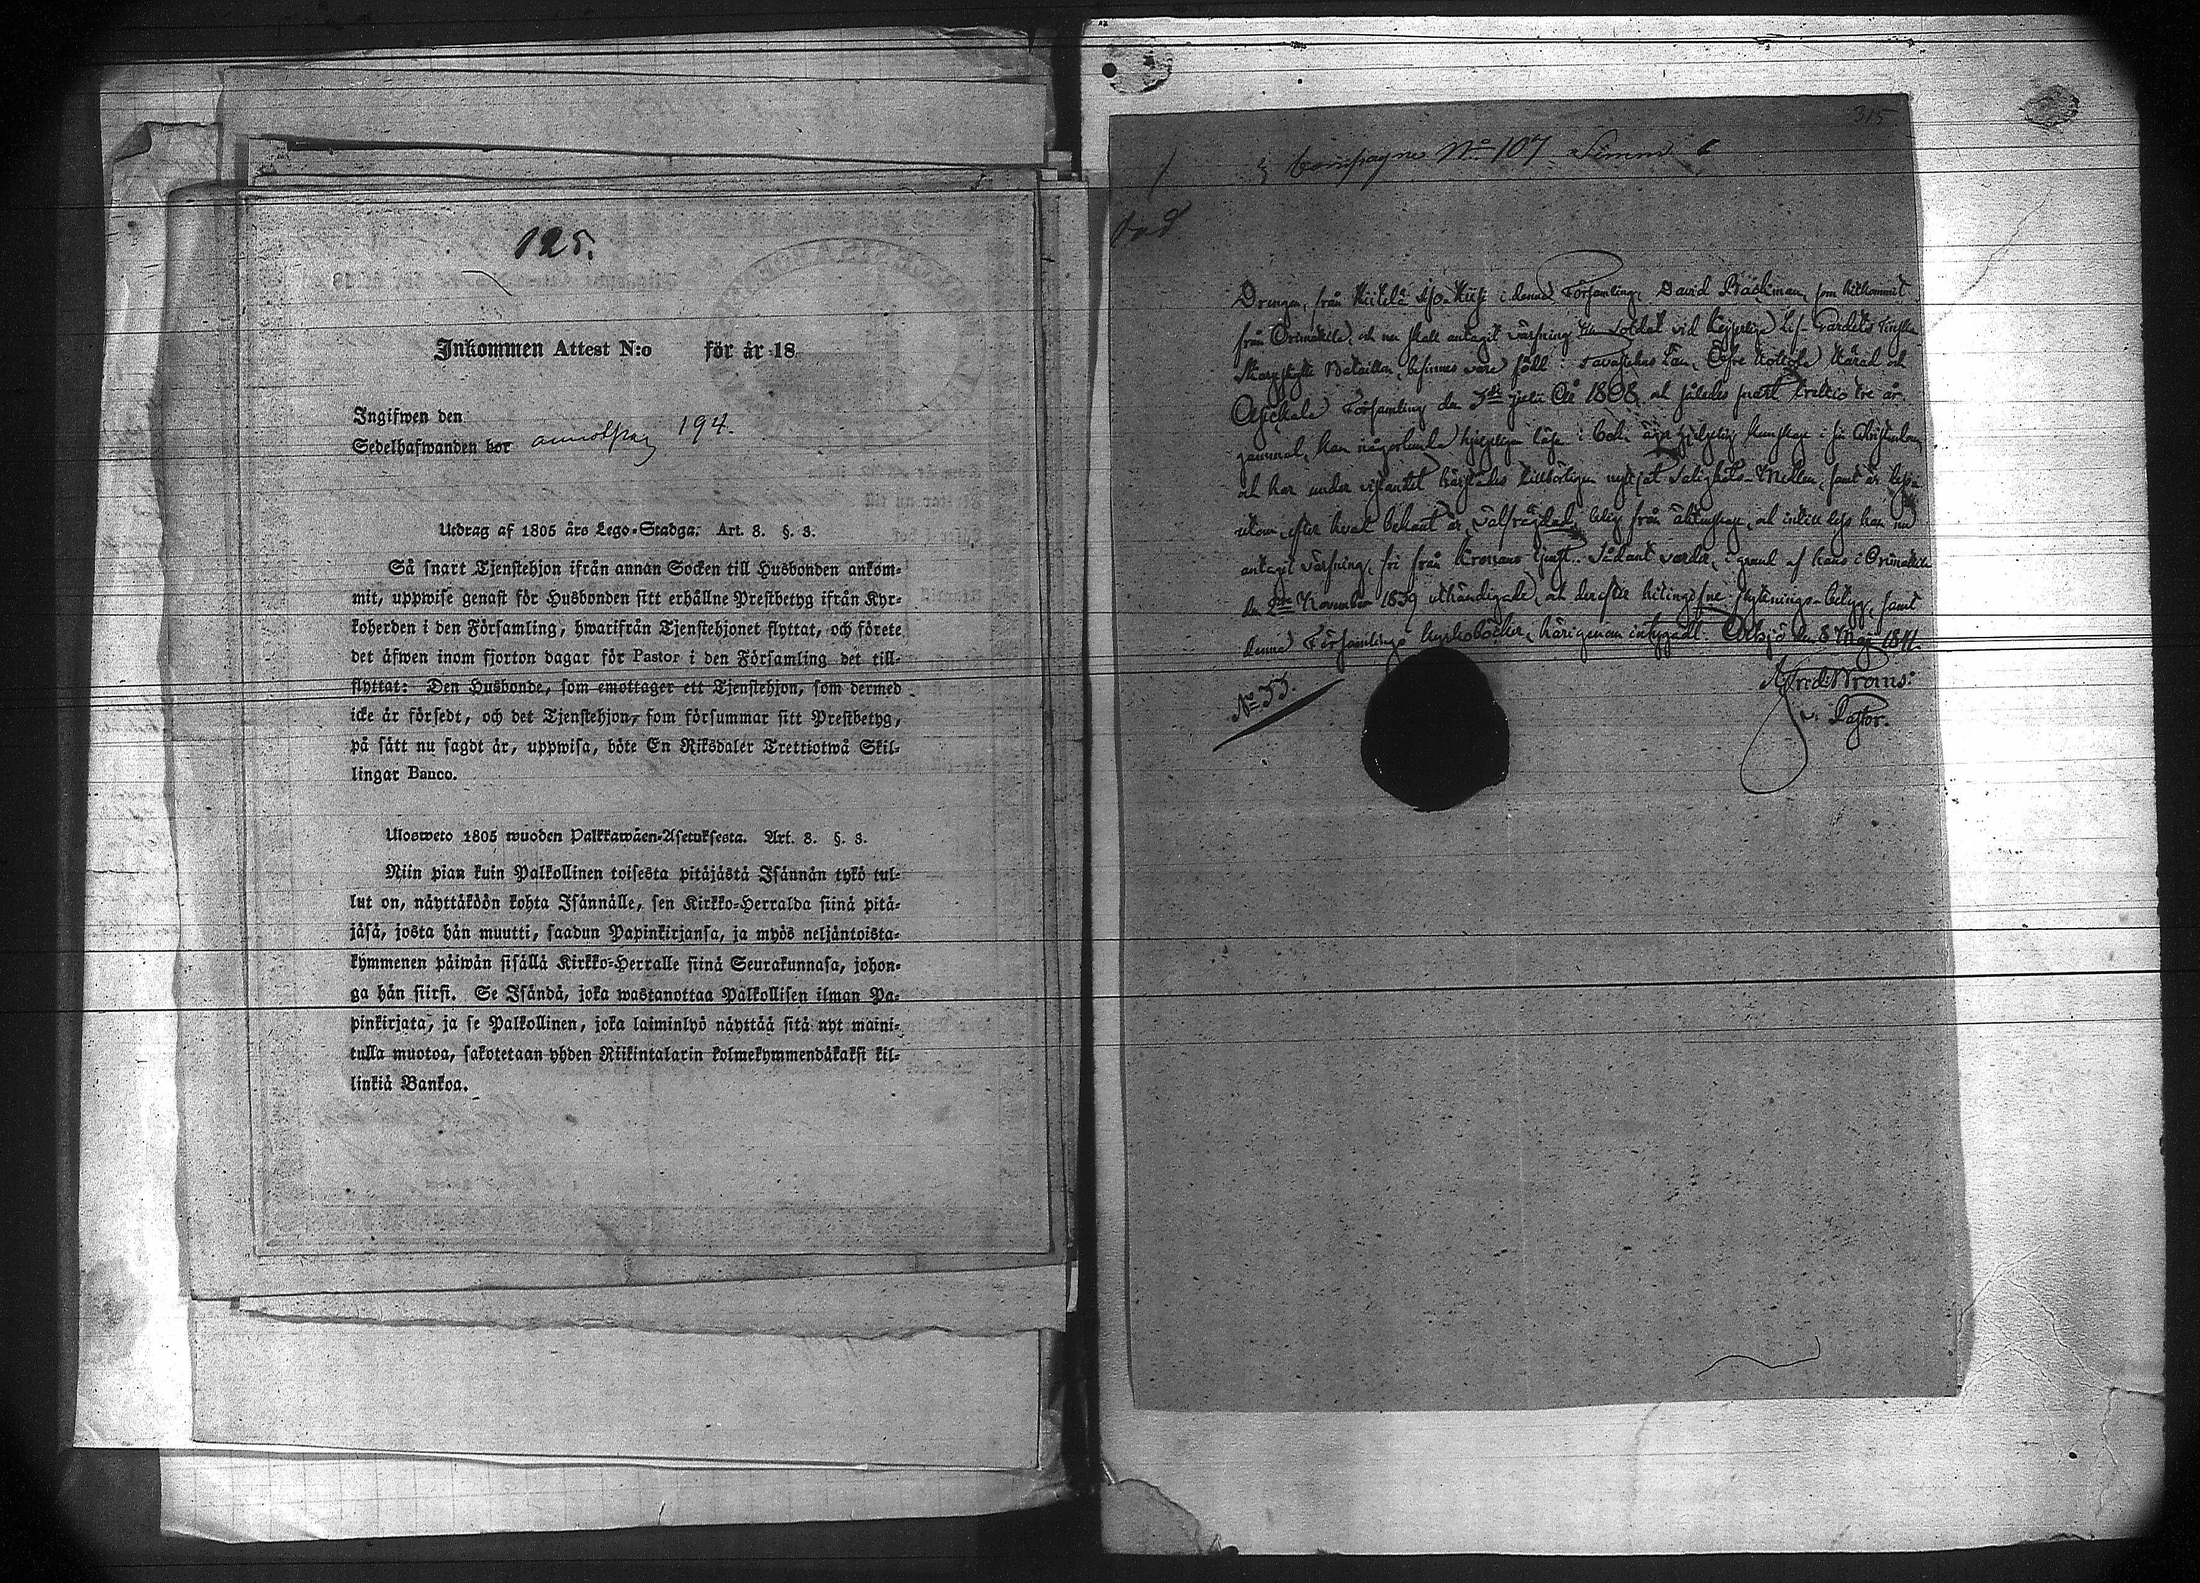 125.
Inkommen Attest N:o för år 18
Ingifwen den
Sedelhafwanden bor 194.
Utdrag af 1805 års Lego-Stadga. Art. 8. §. 3.
Så snart Tjenstehjon ifrån annan Socken till Husbonden ankom-
mit, uppwise genast för Husbonden sitt erhållne Prestbetyg ifrån Kyr-
koherden i den Församling, hwarifrån Tjenstehjonet flyttat, och förete
det äfwen inom fjorton dagar för Pastor i den Församling det till-
flyttat: Den Husbonde, som emottager ett Tjenstehjon, som dermed
icke är försedt, och det Tjenstehjon, som försummar sitt Prestbetyg,
på sätt nu sagdt är, uppwisa, böte En Riksdaler Trettiotwå Skil-
lingar Banco.
Ulosweto 1805 wuoden Palkkawäen-Asetuksesta. Art. 8. §. 3.
Niin pian kuin Palkollinen toisesta pitäjästä Isännän tykö tul-
lut on, näyttäköön kohta Isännälle, sen Kirkko-Herralda siinä pitä-
jäsä, josta hän muutti, saadun Papinkirjansa, ja myös neljäntoista-
kymmenen päiwän sisällä Kirkko-Herralle siinä Seurakunnasa, johon-
ga hän siirsi. Se Isändä, joka wastanottaa Palkollisen ilman Pa-
pinkirjata, ja se Palkollinen, joka laiminlyö näyttää sitä nyt maini-
tulla muotoa, sakotetaan yhden Riikintalarin kolmekymmendäkaksi kil-
linkiä Bankoa.
315
Compagne No 107
Drengen, från i denna Församling, David som hitkommit
från Orimattila, och nu skall antagit värfning till Soldat vid Kejserlige Lif-Gardets Finska
Skarpskytte Bataillon, befinnes vara född i Tavastehus Län, Öfre Hollola Härad och
Församling den Juli År 1808, och således snart trettio tre år
gammal, kan någorlunda läsa i bok, äger kunskap i sin Christendom
och har under vistandet härstädes tillbörligen nyttjat Salighets-Medlen, samt är
utom, efter hvad bekant är, välfrägdad, ledig från äktenskap, och intill dess han nu
antagit värfning, fri från Kronans tjenst. Sådant varder, i grund af hans i Orimattila
den 2 November 1839 uthändigade, och derefter hit ingifne flyttnings-betyg, samt
denna Församlings kyrkoböcker, härigenom intygadt. den 8 Maji 1841.
No 33.
v. Pastor.